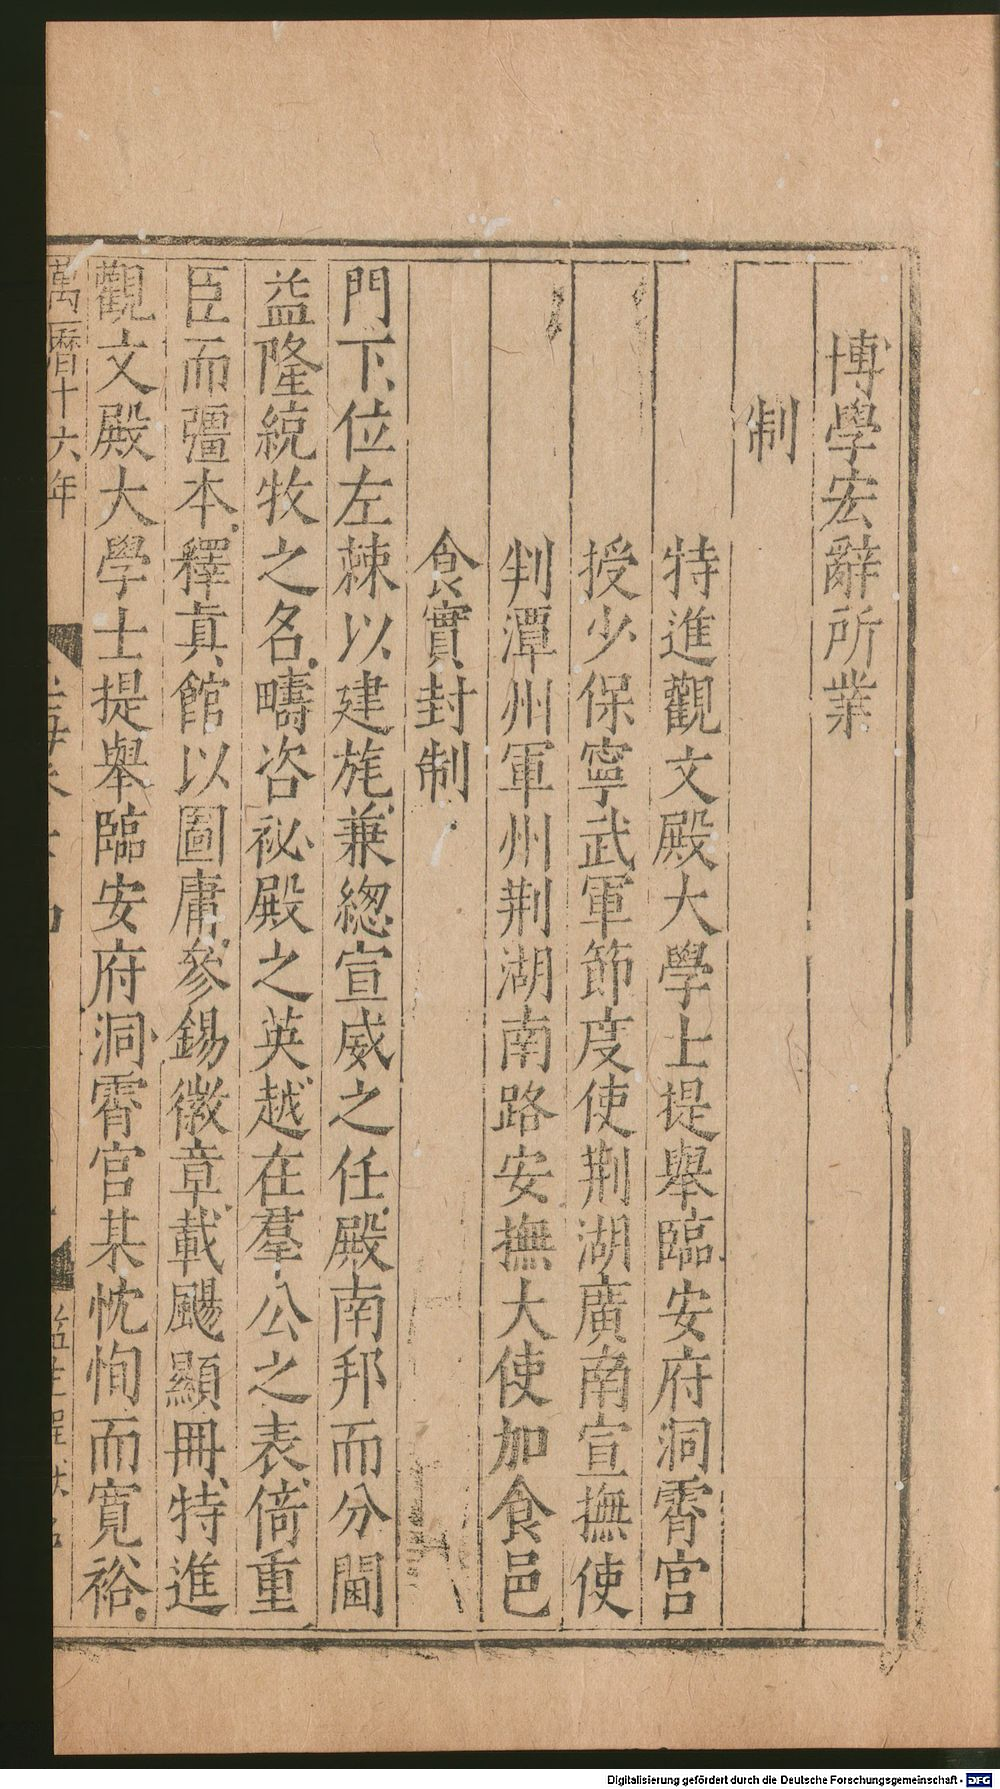 博學宏辭所業
制
特進觀文殿大學士提舉臨安府洞霄宮
授少保寧武軍節度使荆湖廣南宣撫使
判潭州軍州荆湖南路安撫大使加食邑
食實封制
門下位左棘以建旄兼緫宣威之任殿南邦而分閫
益隆統牧之名疇咨祕殿之英越在羣公之表倚重
臣而彊本釋真館以圖庸參錫徽章載颺顯冊特進
觀文殿大學士提舉臨安府洞霄宮某忱恂而寬裕
萬曆十六年
玉海卷